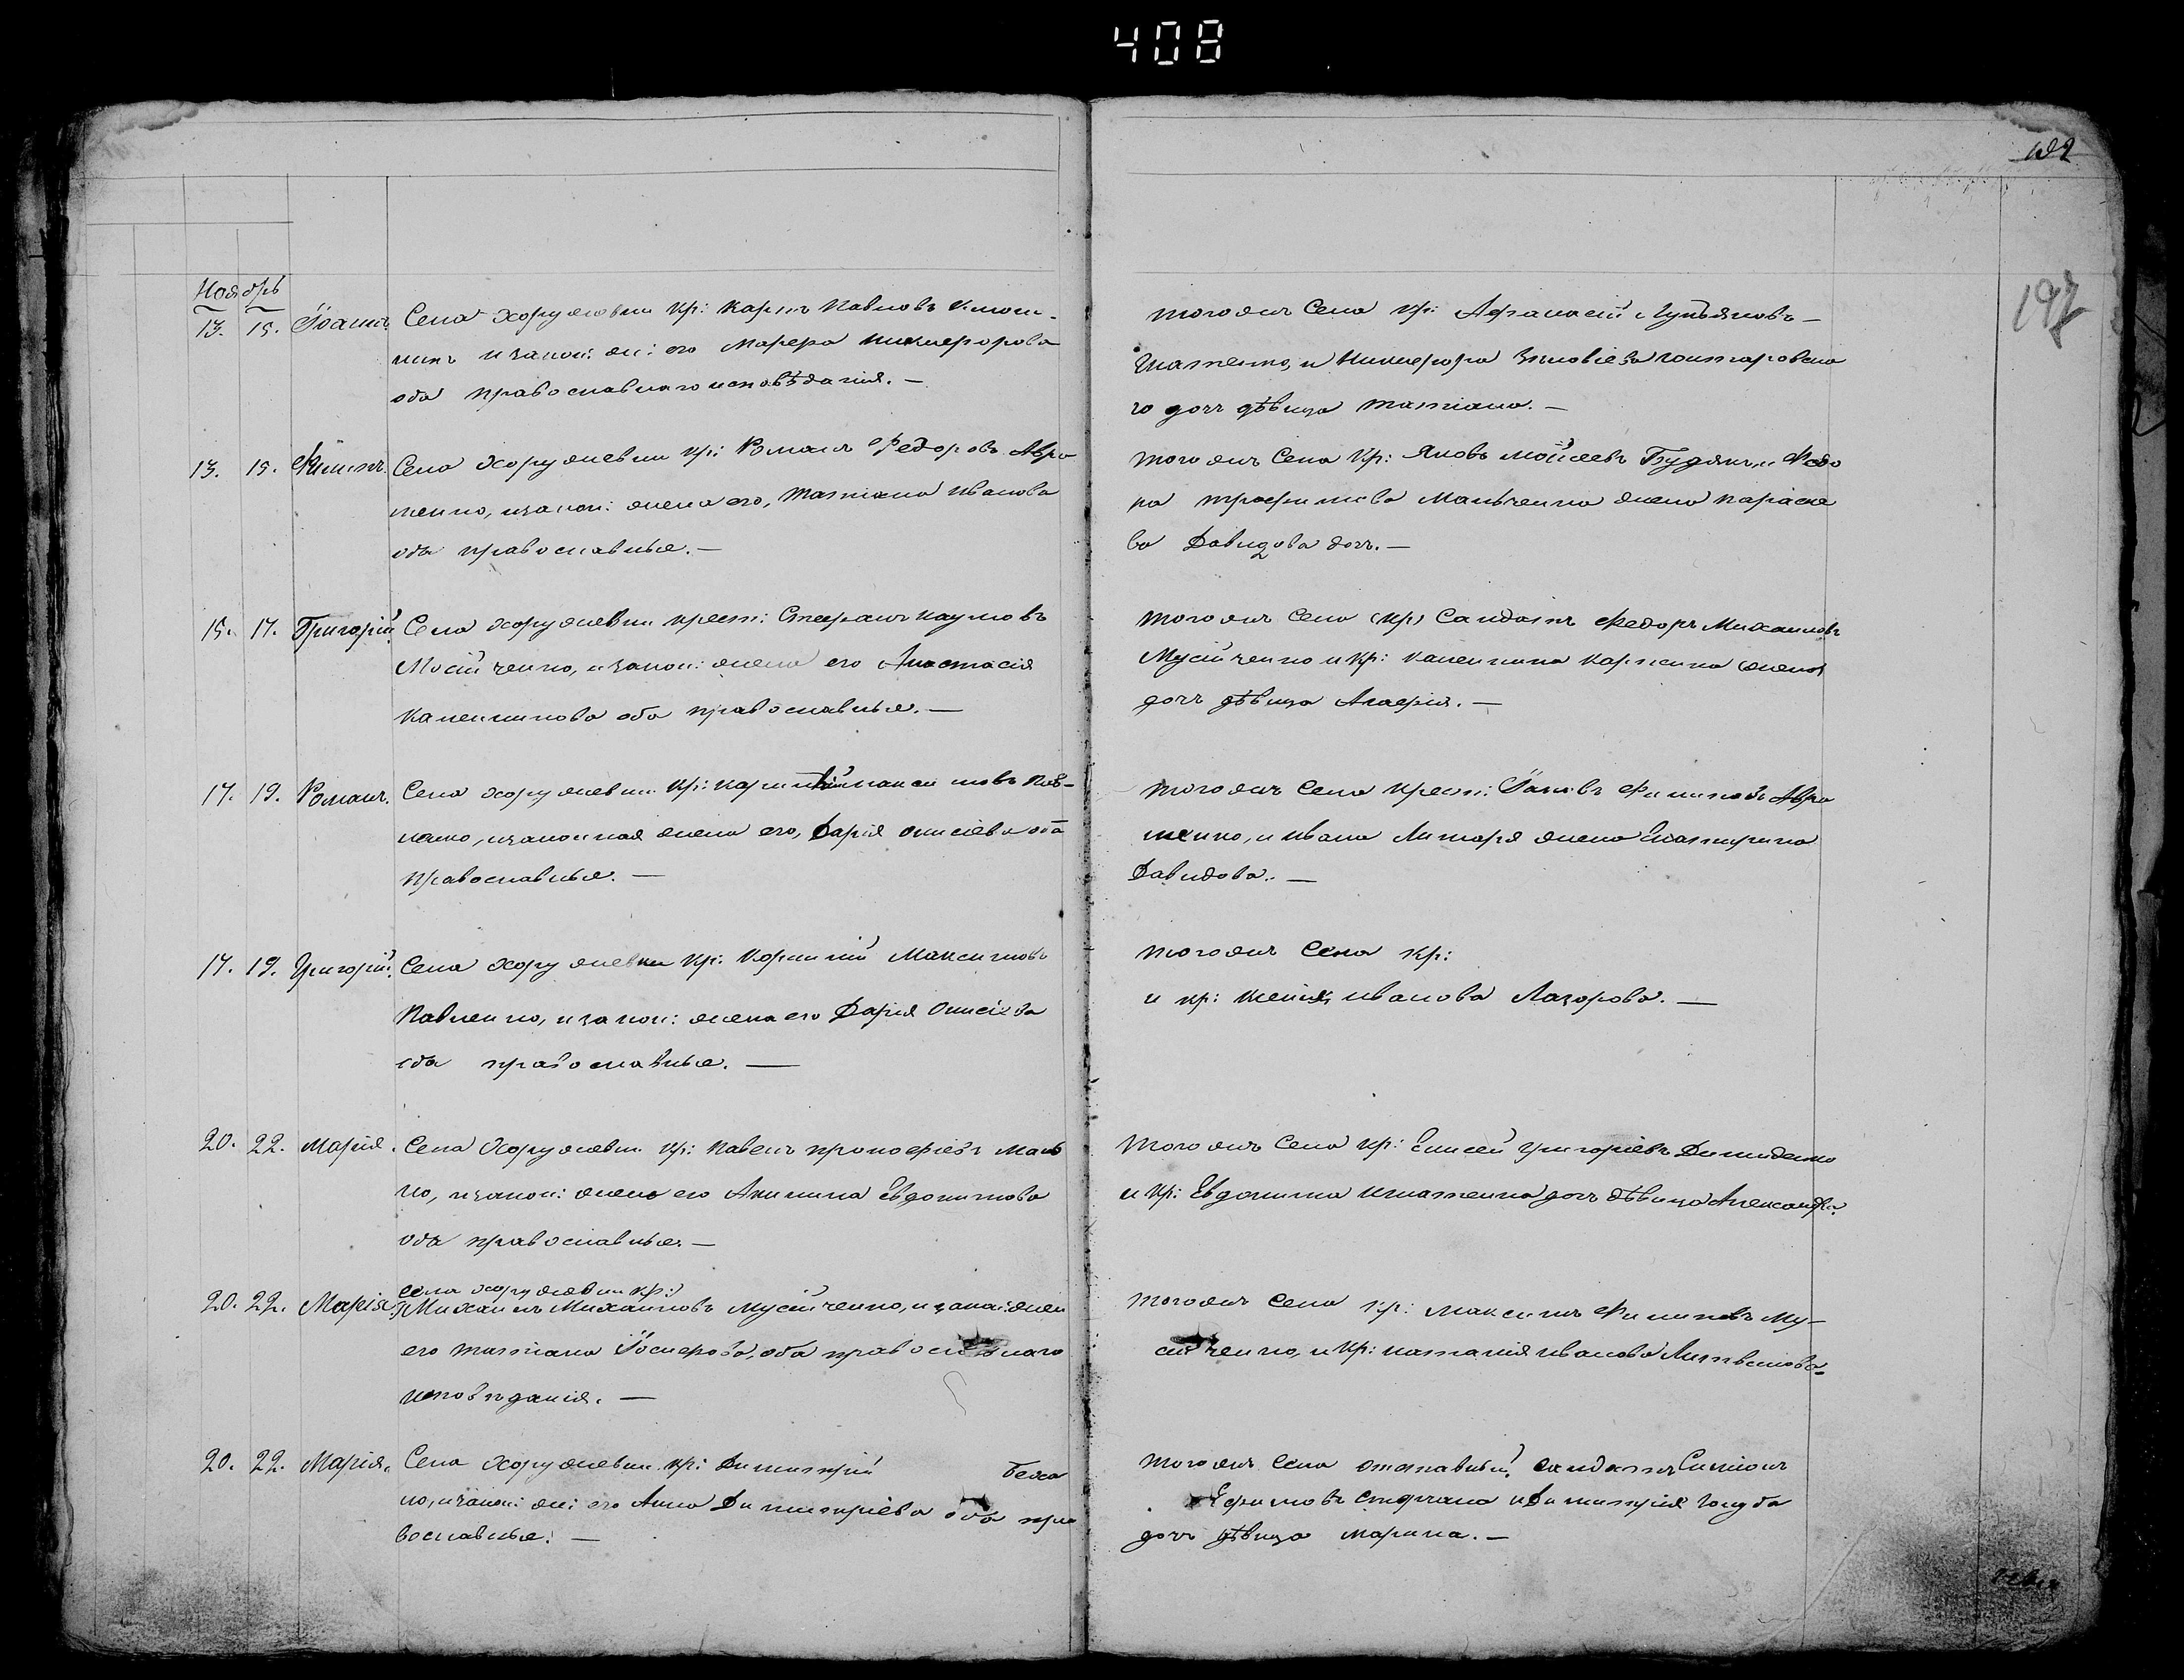 408
192
197
Ноябрь
13. 15. Іоаннъ. Села Хорунжевки кр: Карпъ Павловъ
и закон: жен: его Марфа Никифорова
оба православнаго исповѣданія. —
тогожъ села кр: Афанасій Лукьяновъ —
Игнатенко, и Никифора Зиновіева
го дочь дѣвица Татіана. —
13. 15. Филипъ. Села Хорунжевки кр: Романъ Федоровъ Авра
менко, и закон: жена его, Татіана Иванова
оба православные. —
тогожъ села кр: Яковъ Мойсеевъ Будякъ, и Федо
ра Трофимова жена Параске
ва Давидова дочь. —
15. 17. Григорій. Села Хорунжевки крест: Стефанъ Наумовъ
Мосійченко, и закон: жена его Анастасія
Калениикова оба православные. —
тогожъ села кр: Солдатъ Федоръ Михаиловъ
Мусійченко и кр:
дочь дѣвица Агафія. —
17. 19. Романъ. Села Хорунжевки кр: Корнилій Максимовъ Пав-
ленко, и законная жена его, Дарія Онисіева оба
православные. —
тогожъ села крест: Іаковъ Филиповъ Авра
менко, и Ивана Литаря жена Екатерина
Давидова. —
17. 19. Григорій. Села Хорунжевки кр: Корнилій Максимовъ
Павленко, и закон: жена его Дарія Онисіева
оба православные. —
тогожъ села кр:
и кр: Иванова Лазорова. —
20. 22. Марія. Села Хорунжевки кр: Павелъ Прокофіевъ Маль
ко, и закон: жена его Акилина Евдокимова
оба православные. —
тогожъ села кр: Елисей Григоріевъ Демиденко
и кр: Евдокима Игнатенка дочь дѣвица Александра.
села Хорунжевки кр:
20. 22. Марія. Михаилъ Михаиловъ Мусійченко, и закон: жена
его Татіана Іосифова, оба православнаго
исповѣданія. —
тогожъ села кр: Максимъ Филиповъ Му-
сійченко, и кр: Наталія Иванова Литвинова
20. 22. Марія. Села Хорунжевки кр: Димитрій Безка
но, и закон: жен: его Анна Димитріева оба пра
вославные. —
тогожъ села отставный солдатъ Симіонъ
Ефимовъ и Димитрія Голуба
дочь дѣвица Марина. —